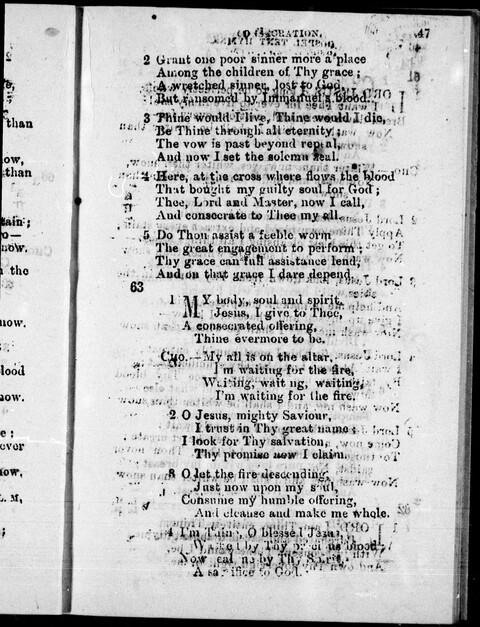 47
2 Grant one poor sinner more a place
Among the children of Thy grace;
A wretched sinner, lost to God,
But ransomed by Immanuel's blood.
3 Thine would I live, Thine would I die,
Be Thine through all eternity;
The vow is past beyond repeal,
And now I set the solemn seal.
4 Here, at the cross where flows the blood
That bought my guilty soul for God;
Thee, Lord and Master, now I call,
And consecrate to Thee my all.
5 Do Thou assist a feeble worm
The great engagement to perform;
Thy grace can full assistance lend,
And on that grace I dare depend.
63
1 MY body, soul and spirit,
Jesus, I give to Thee,
A consecrated offering,
Thine evermore to be.
CHO.—My all is on the altar,
I'm waiting for the fire,
Waiting, wait ng, waiting,
I'm waiting for the fire.
2 O Jesus, mighty Saviour,
I trust in Thy great name;
I look for Thy salvation,
Thy promise now I claim.
3 O let the fire descending,
Just now upon my soul,
Consume my humble offering,
And cleanse and make me whole.
4 I'm Thine, O blessed Jesus,
by Thy blood,
Now by Thy
A sacrifice to God.
than
now,
than
tain;
now.
n the
now.
blood
now.
now,
L. M,